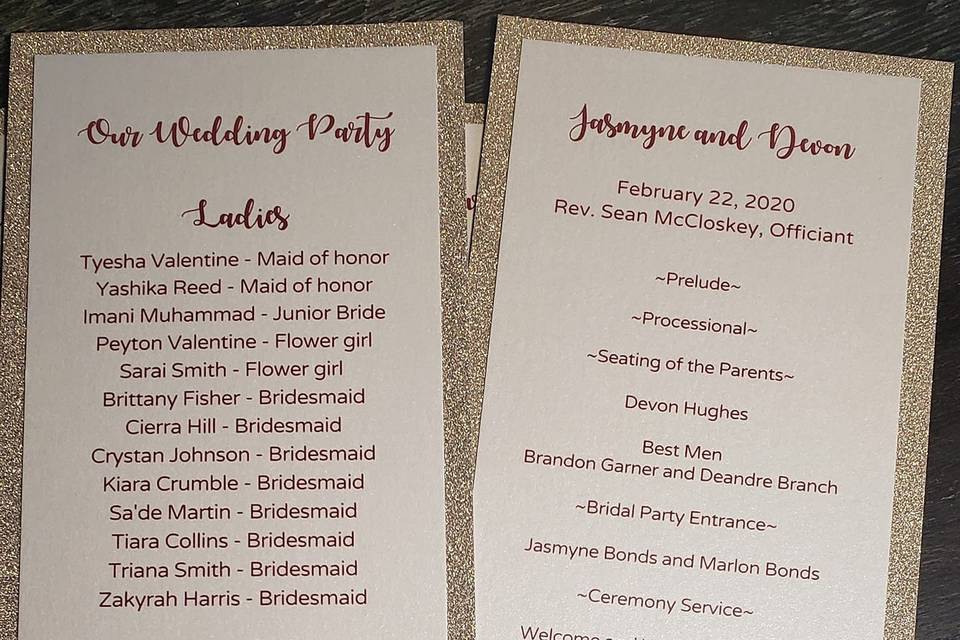 Our Wedding Party
Ladies
Tyesha Valentine - Maid of honor
Yashika Reed - Maid of honor
Imani Muhammad - Junior Bride
Peyton Valentine - Flower girl
Sarai Smith - Flower girl
Brittany Fisher - Bridesmaid
Cierra Hill - Bridesmaid
Crystan Johnson - Bridesmaid
Kiara Crumble - Bridesmaid
Sa'de Martin - Bridesmaid
Tiara Collins - Bridesmaid
Triana Smith - Bridesmaid
Zakyrah Harris - Bridesmaid
Jasmyne and Devon
February 22, 2020
Rev. Sean McCloskey, Officiant
~Prelude~
~Processional~
~Seating of the Parents~
Devon Hughes
Best Men
Brandon Garner and Deandre Branch
~Bridal Party Entrance~
Jasmyne Bonds and Marlon Bonds
~Ceremony Service~
Welcome